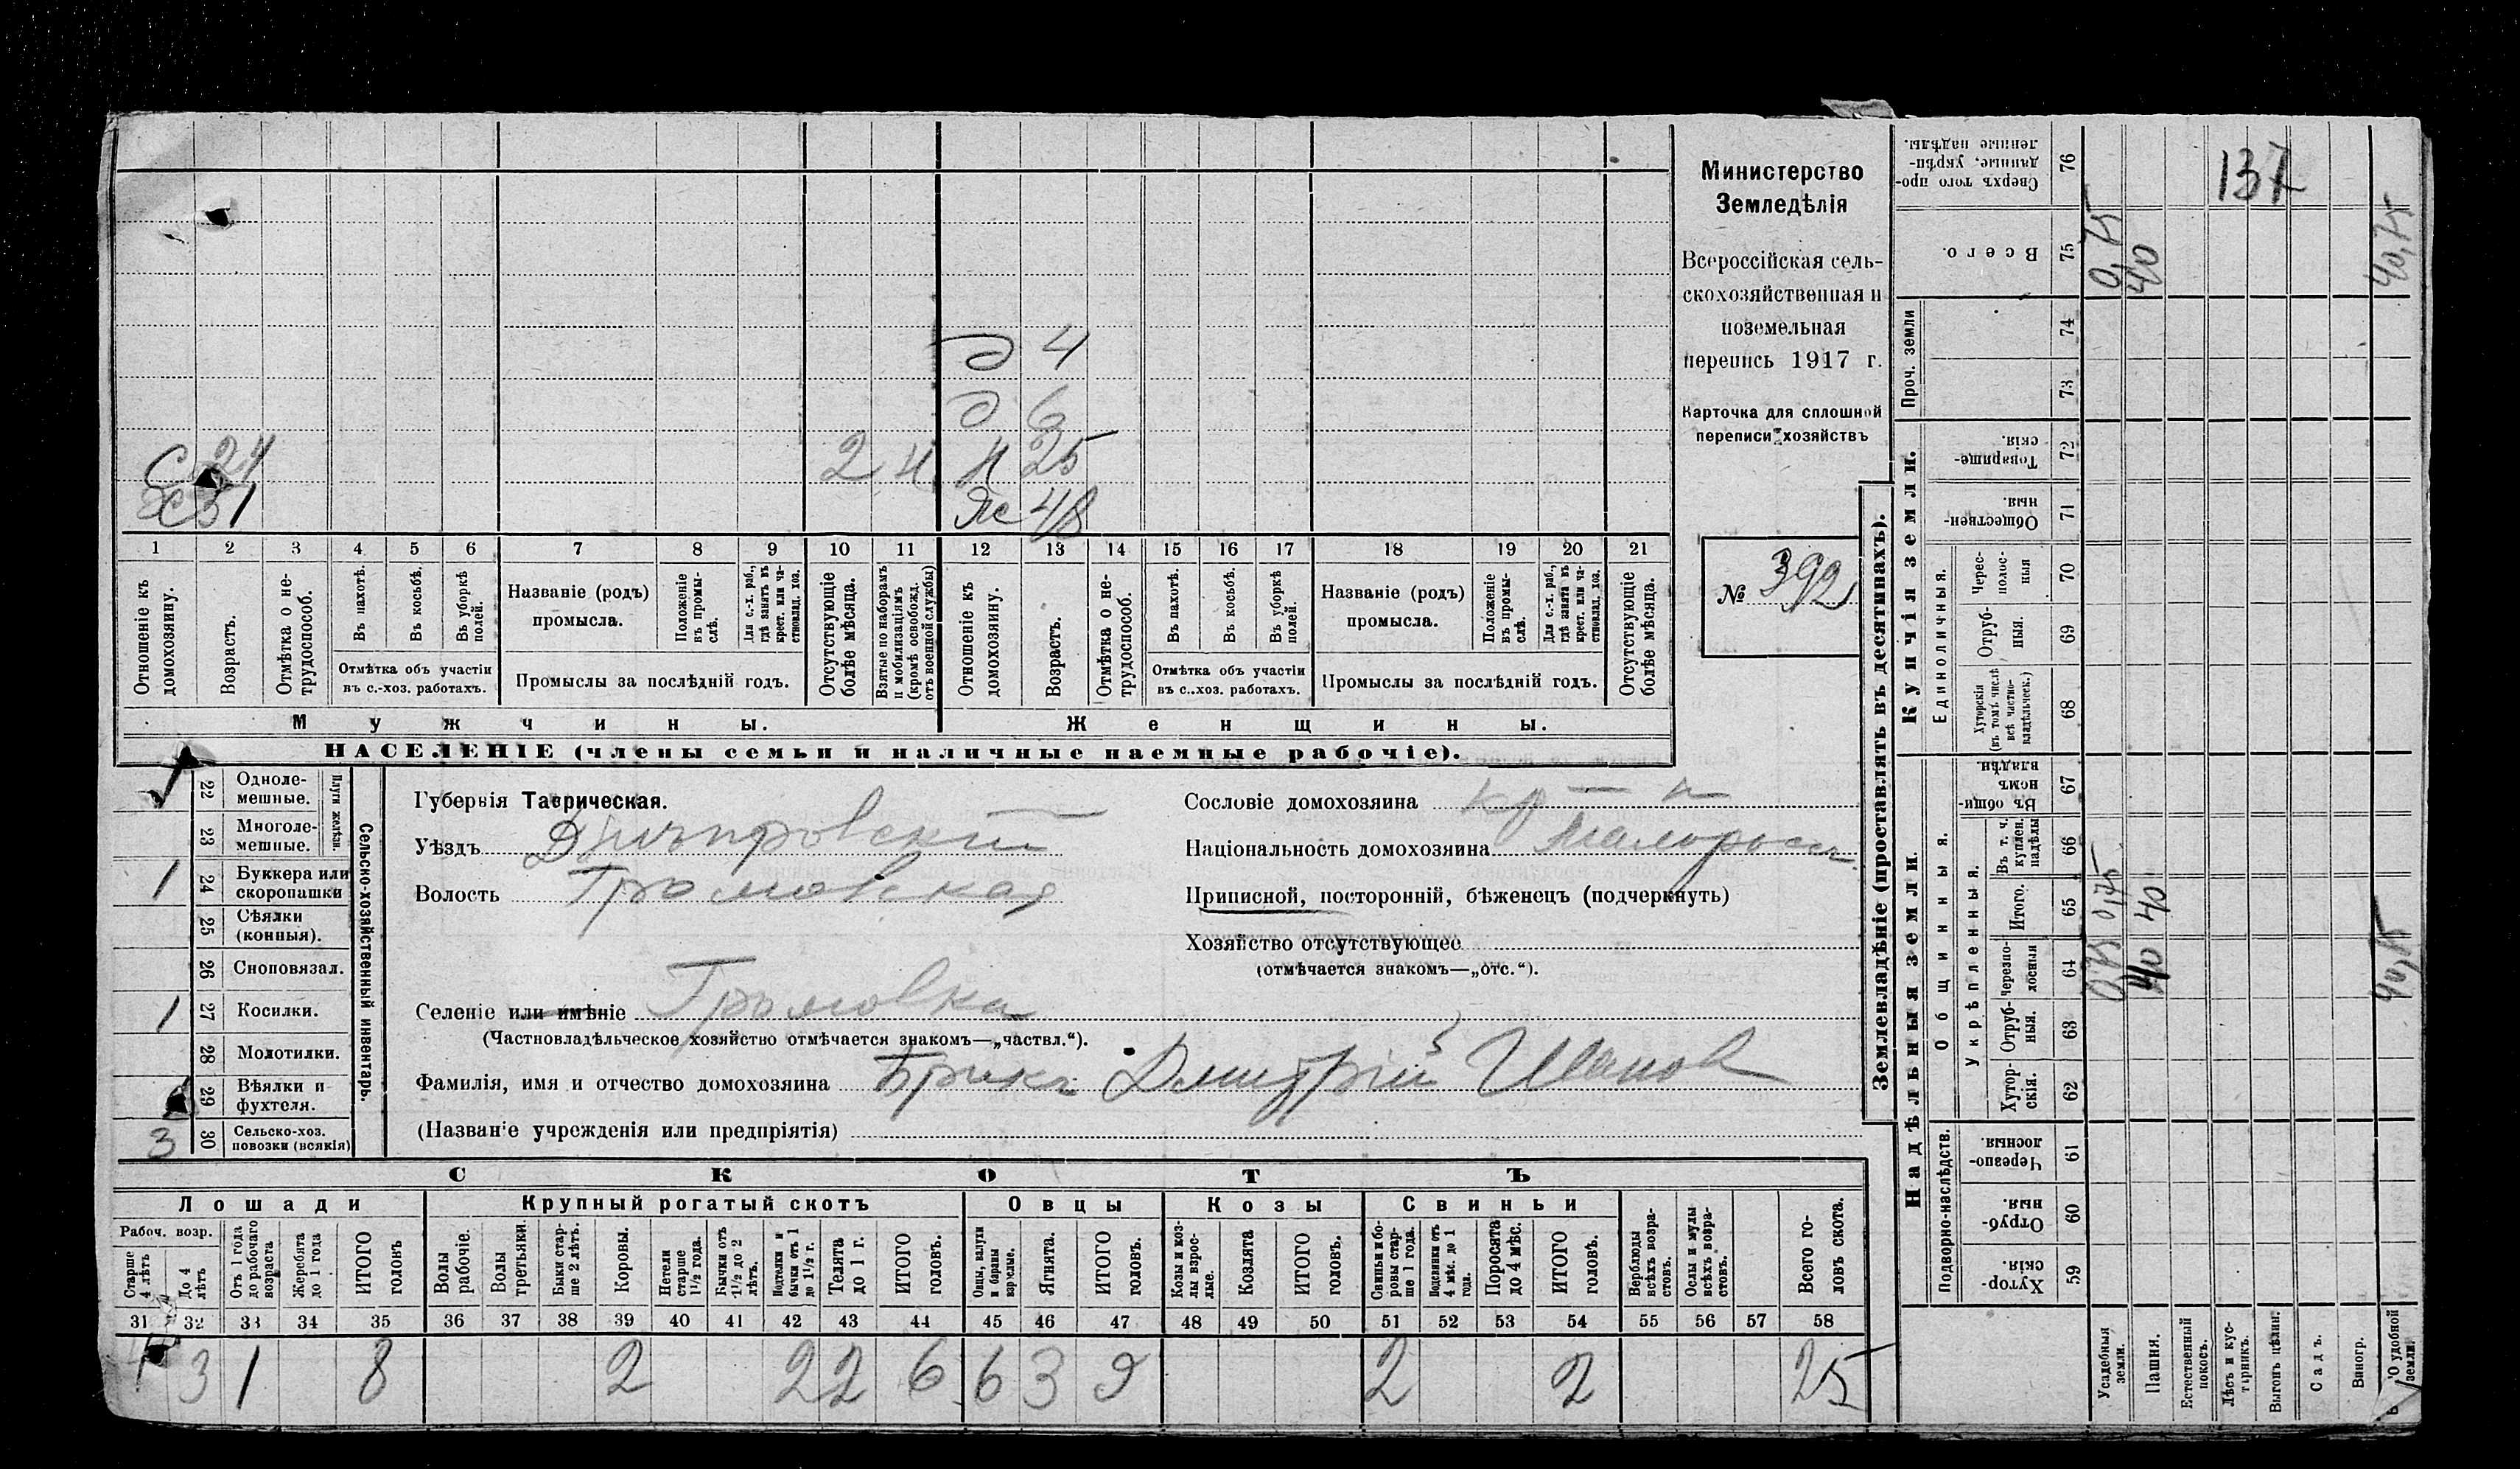 Министерство
Земледѣлія
Всероссійская сель-
скохозяйственная и
поземельная
перепись 1917 г.
Карточка для сплошной
переписи хозяйствъ
№ 392
д 4
д 6
С 24 2 4 Н 25
Хо 51 Же 48
1 2 3 4 5 6 7 8 9 10 11 12 13 14 15 16 17 18 19 20 21
Отношеніе къ домохозяину.
Возрастъ.
Отмѣтка о не-трудоспособ.
Въ пахотѣ.
Въ косьбѣ.
Въ уборкѣ полей.
Отмѣтка объ участіи
въ с.-хоз. работахъ.
Названіе (родъ)
промысла.
Положеніе въ промы-слѣ.
Для с.-х. раб., гдѣ занятъ въ крест. или ча-стновлад. хоз.
Промыслы за послѣдній годъ.
Отсутствующіе болѣе мѣсяца.
Взятые по наборамъ и мобилизаціямъ (кромѣ освобожд. отъ военной службы)
Отношеніе къ домохозяину.
Возрастъ.
Отмѣтка о не-трудоспособ.
Въ пахотѣ.
Въ косьбѣ.
Въ уборкѣ полей.
Отмѣтка объ участіи
въ с..хоз. работахъ.
Названіе (родъ)
промысла.
Положеніе въ промы-слѣ.
Для с.-х. раб., гдѣ занята въ крест. или ча-стновлад. хоз.
Промыслы за послѣдній годъ.
Отсутствующіе болѣе мѣсяца.
Мужчины.
Женщины.
НАСЕЛЕНІЕ (члены семьи и наличные наемные рабочіе).
Сельско-хозяйственный инвентарь.
Плуги желѣзн.
22 Одноле-мешные.
23 Многоле-мешные.
1 24 Буккера или скоропашки
25 Сѣялки (конныя).
26 Сноповязал.
1 27 Косилки.
28 Молотилки.
29 Вѣялки и фухтеля.
3 30 Сельско-хоз. повозки (всякія)
Губернія Таврическая.
Уѣздъ Днѣпровскій
Волость Громовская
Селеніе или имѣніе Громовка
(Частновладѣльческое хозяйство отмѣчается знакомъ—„частвл.“).
Фамилія, имя и отчество домохозяина Дмитрій Иванов
(Названіе учрежденія или предпріятія)
Сословіе домохозяина кр-н
Національность домохозяина Малоросъ
Приписной, посторонній, бѣженецъ (подчеркнуть)
Хозяйство отсутствующее
(отмѣчается знакомъ—„отс.“).
СКОТЪ
Лошади Крупный рогатый скотъ Овцы Козы Свиньи
Рабоч. возр.
Старше 4 лѣтъ
До 4 лѣтъ
Отъ 1 года до рабочаго возраста
Жеребята до 1 года
ИТОГО головъ
Волы рабочіе.
Волы третьяки.
Быки стар-ше 2 лѣтъ.
Коровы.
Нетели старше 1½ года.
Бычки отъ 1½ до 2 лѣтъ.
Подтелки и бычки отъ 1 до 1½ г.
Телята до 1 г.
ИТОГО головъ.
Овцы, валухи и бараны взрослые.
Ягнята.
ИТОГО головъ.
Козы и коз-лы взрос-лые.
Козлята
ИТОГО головъ.
Свиньи и бо-ровы стар-ше 1 года.
Подсвинки отъ 4 мѣс. до 1 года.
Поросята до 4 мѣс.
ИТОГО головъ.
Верблюды всѣхъ возра-стовъ.
Ослы и мулы всѣхъ возра-стовъ.
Всего го-ловъ скота.
31 32 33 34 35 36 37 38 39 40 41 42 43 44 45 46 47 48 49 50 51 52 53 54 55 56 57 58
4 3 1 8 2 2 2 6 6 3 9 2 2 25
Землевладѣніе (проставлять въ десятинахъ).
Купчія земли.
Надѣльныя земли.
Сверхъ того про-данные, укрѣп-ленные надѣлы. 76
137
Всего. 75 0,75 40 40,75
Проч. земли
74
73
Товарище-скія. 72
Обществен-ныя. 71
Единоличныя.
Черес-полос-ныя 70
Отруб-ныя. 69
Хуторскія (въ томъ числѣ всѣ частно-владѣльческ.) 68
Общинныя.
Въ общин-номъ владѣн. 67
Укрѣпленныя.
Въ т. ч. куплен. надѣлы 66
Итого. 65 0,75 40
Черезпо-лосныя 64 0,75 40 40,75
Отруб-ныя. 63
Хутор-скія. 62
Подворно-наслѣдств.
Черезпо-лосныя. 61
Отруб-ныя. 60
Хутор-скія. 59
Усадебныя земли.
Пашня.
Естественный покосъ.
Лѣсъ и кус-тарникъ.
Выгонъ цѣлин.
Садъ.
Виногр.
удобной земли.